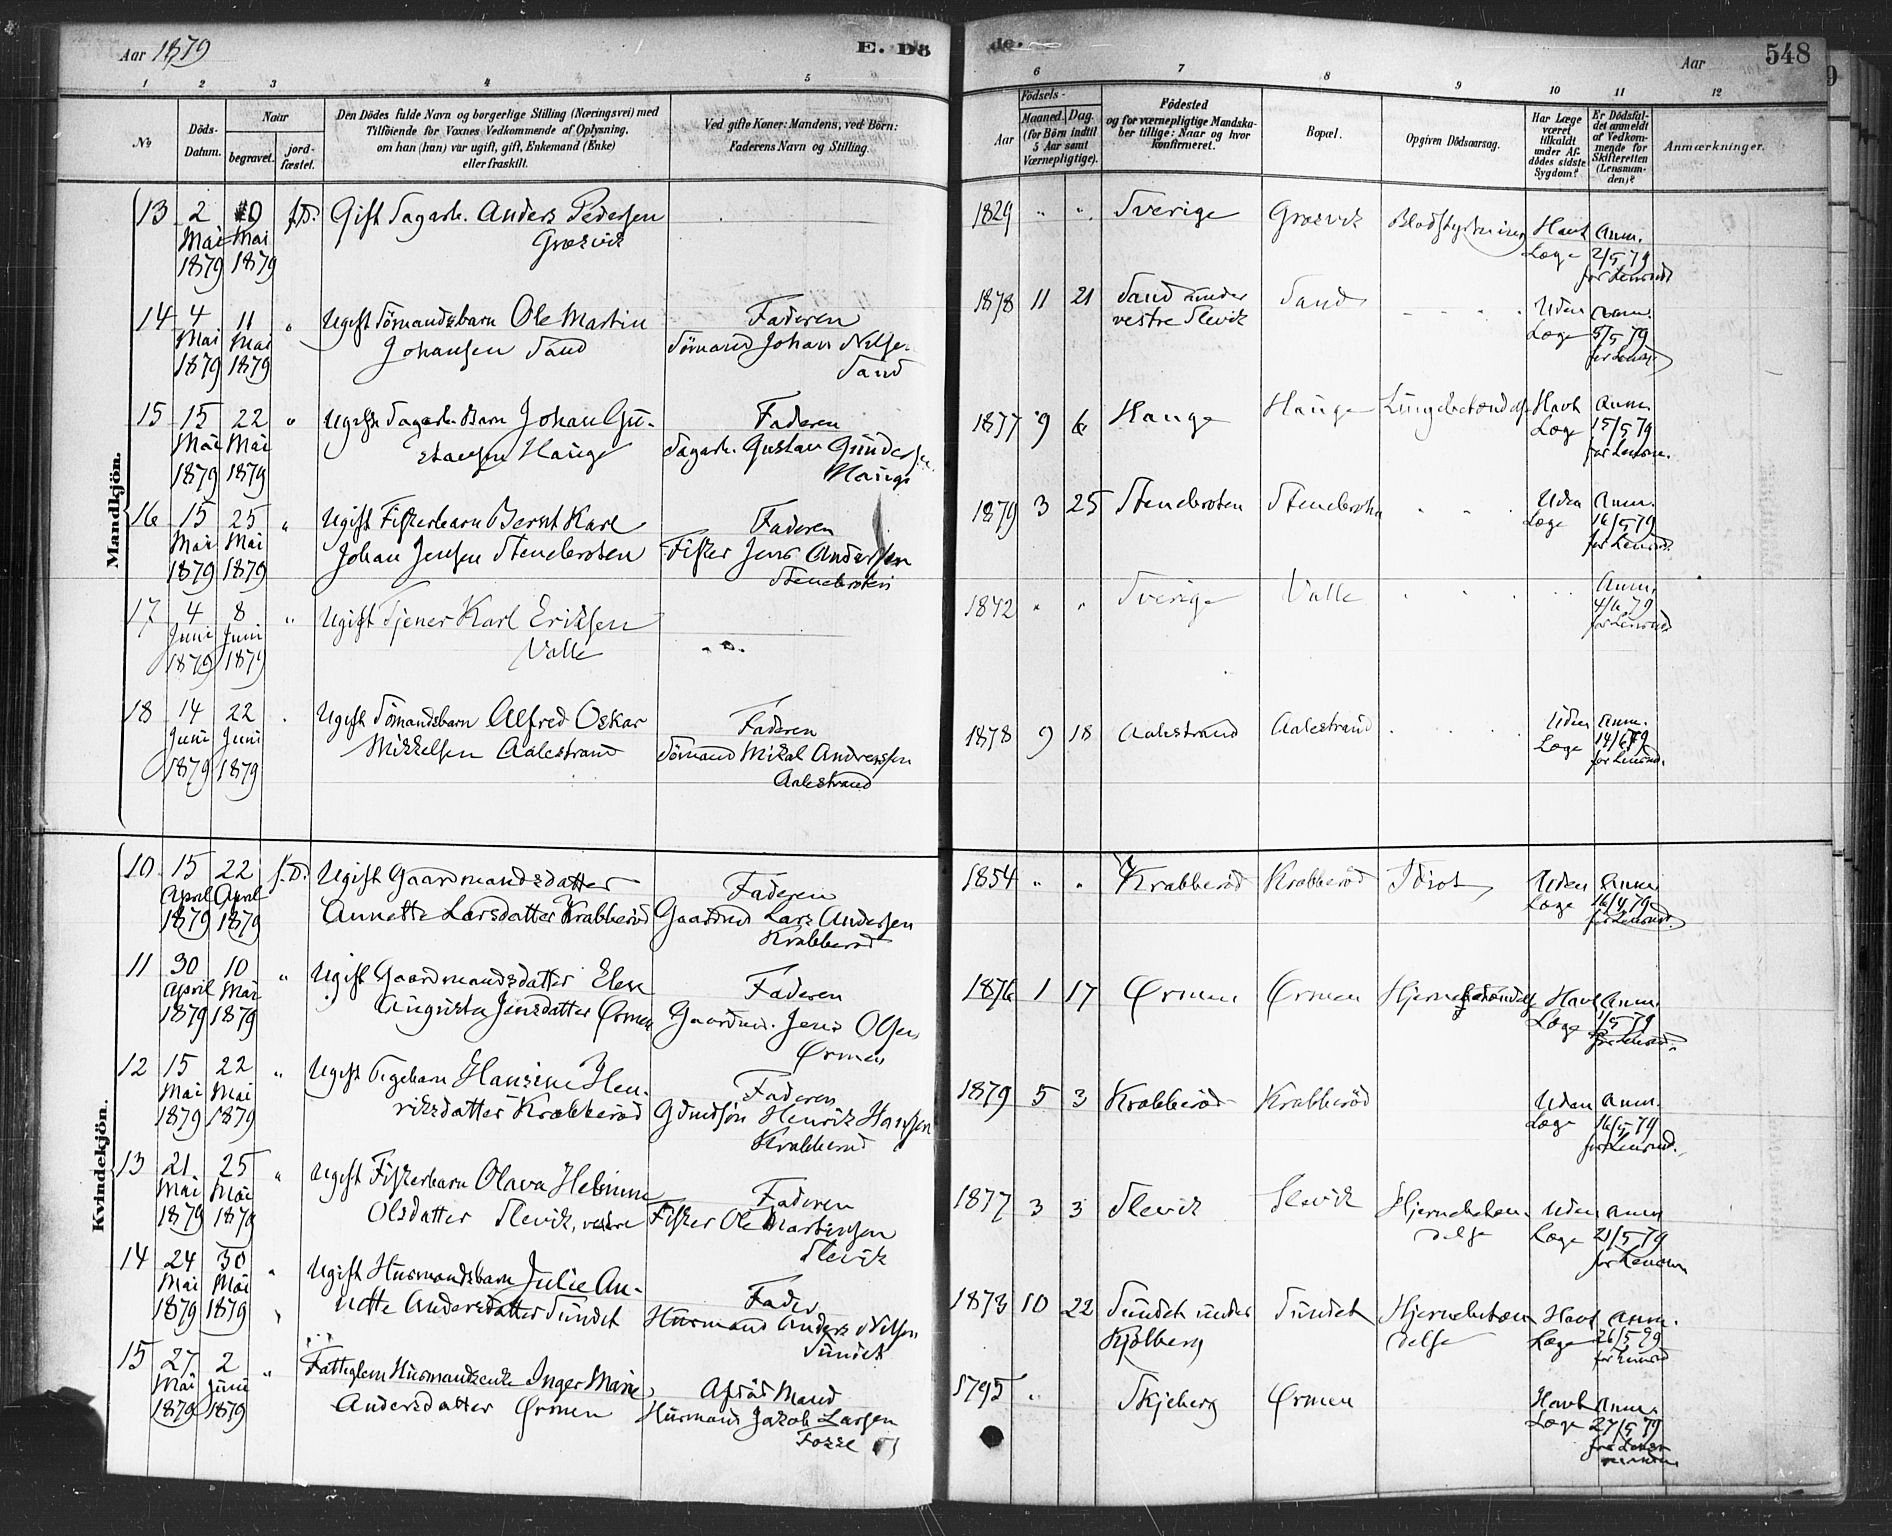 Aar 1879
E. Dö
de.
Aar
548
1 2 3 4 5 6 7 8 9 10 11 12
No
Döds-
Datum.
Naar
begravet.
jord-
fæstet.
Den Dödes fulde Navn og borgerlige Stilling (Næringsvei) med
Tilföiende for Voxnes Vedkommende af Oplysning,
om han (hun) var ugift, gift, Enkemand (Enke)
eller fraskilt.
Ved gifte Koner: Mandens, ved Börn:
Faderens Navn og Stilling.
Födsels-
Aar
Maaned.
Dag.
(for Börn indtil
5 Aar samt
Værnepligtige).
Födested
og for værnepligtige Mandska-
ber tillige: Naar og hvor
konfirmeret.
Bopæl.
Opgiven Dödsaarsag.
Har Læge
været
tilkaldt
under Af-
dödes sidste
Sygdom?
Er Dödsfal-
det anmeldt
af Vedkom-
mende for
Skifteretten
(Lensman-
den)?
Anmærkninger.
Mandkjön.
13 2 Mai 1879 Mai 1879 f.D. Gift Sagarb. Anders Pedersen
Græsvik
1829 " " Sverige Græsvik Blodstyrtning Havt Læge Anm. 2/5 79
14 4 Mai 1879 11 Mai 1879 " Ugift Sömandsbarn Ole Martin
Johansen Sand
Faderen
Sömand Johan Nilse.
Sand
1878 11 21 Sand under
vestre Slevik
Sand Uden Læge Anm. 5/5 79
15 15 Mai 1879 22 Mai 1879 " Ugift Sagarb. Barn Johan Gu-
stavsen Hauge
Faderen
Sagarb. Gustav Gunders
Hauge
1877 9 6 Hauge Hauge Lungebetændelse Havt Læge Anm. 15/5 79
16 15 Mai 1879 25 Mai 1879 " Ugift Fiskerbarn Bernt Karl
Johan Jensen Stenebroten
Faderen
Fisker Jens Andersen
Stenebroten
1879 3 25 Stenebroten Stenebroten Uden Læge Anm. 16/5 79
17 4 Juni 1879 8 Juni 1879 " Ugift Tjener Karl Eriksen
Valle
1842 " " Sverige Valle Anm. 4/6 79
18 14 Juni 1879 22 Juni 1879 Ugift Sömandsbarn Alfred Oskar
Mikkelsen Aalestrand
Faderen
Sömand Mikal Andreassen
Aalestrand
1878 9 18 Aalestrand Aalestrand Uden Læge Anm. 14/6 79
Kvindekjön.
10 15 April 1879 22 April 1879 f.D. Ugift Gaardmandsdatter
Annette Larsdatter Krabberöd
Faderen
Gaardmd Lars Andersen
Krabberöd
1854 " " Krabberöd Krabberöd Idiot Uden Læge Anm. 16/4 79
11 30 April 1879 10 Mai 1879 " Ugift Gaardmandsdatter Elen
Augusta Jensdatter Ørmen
Faderen
Gaardm. Jens Olsen
Ørmen
1876 1 17 Ørmen Ørmen Hjernebetændelse Havt Læge Anm. 1/5 79
12 15 Mai 1879 22 Mai 1879 " Ugift Pigebarn Hansine Hen-
riksdatter Krabberöd
Faderen
Gdmdsön Henrik Hansen
Krabberöd
1879 5 3 Krabberöd Krabberöd Uden Læge Anm. 16/5 79
13 21 Mai 1879 25 Mai 1879 " Ugift Fiskerbarn Olava Helmine
Olsdatter Slevik, vestre
Faderen
Fisker Ole Martinsen
Slevik
1877 3 3 Slevik Slevik Hjernebetæn-
delse
Uden Læge Anm. 21/5 79
14 24 Mai 1879 30 Mai 1879 " Ugift Husmandsbarn Julie An-
nette Andersdatter Sundet
Fader
Husmand Anders Nilsen
Sundet
1873 10 22 Sundet under
Kjölberg
Sundet Hjernebetæn-
delse
Havt Læge Anm. 26/5 79
15 27 Mai 1879 2 Juni 1879 " Fattiglem Husmandsenke Inger Marie
Andersdatter Ørmen
Afdöd Mand
Husmand Jakob Larsen
1795 " Skjeberg Ørmen Havt Læge Anm. 27/5 79